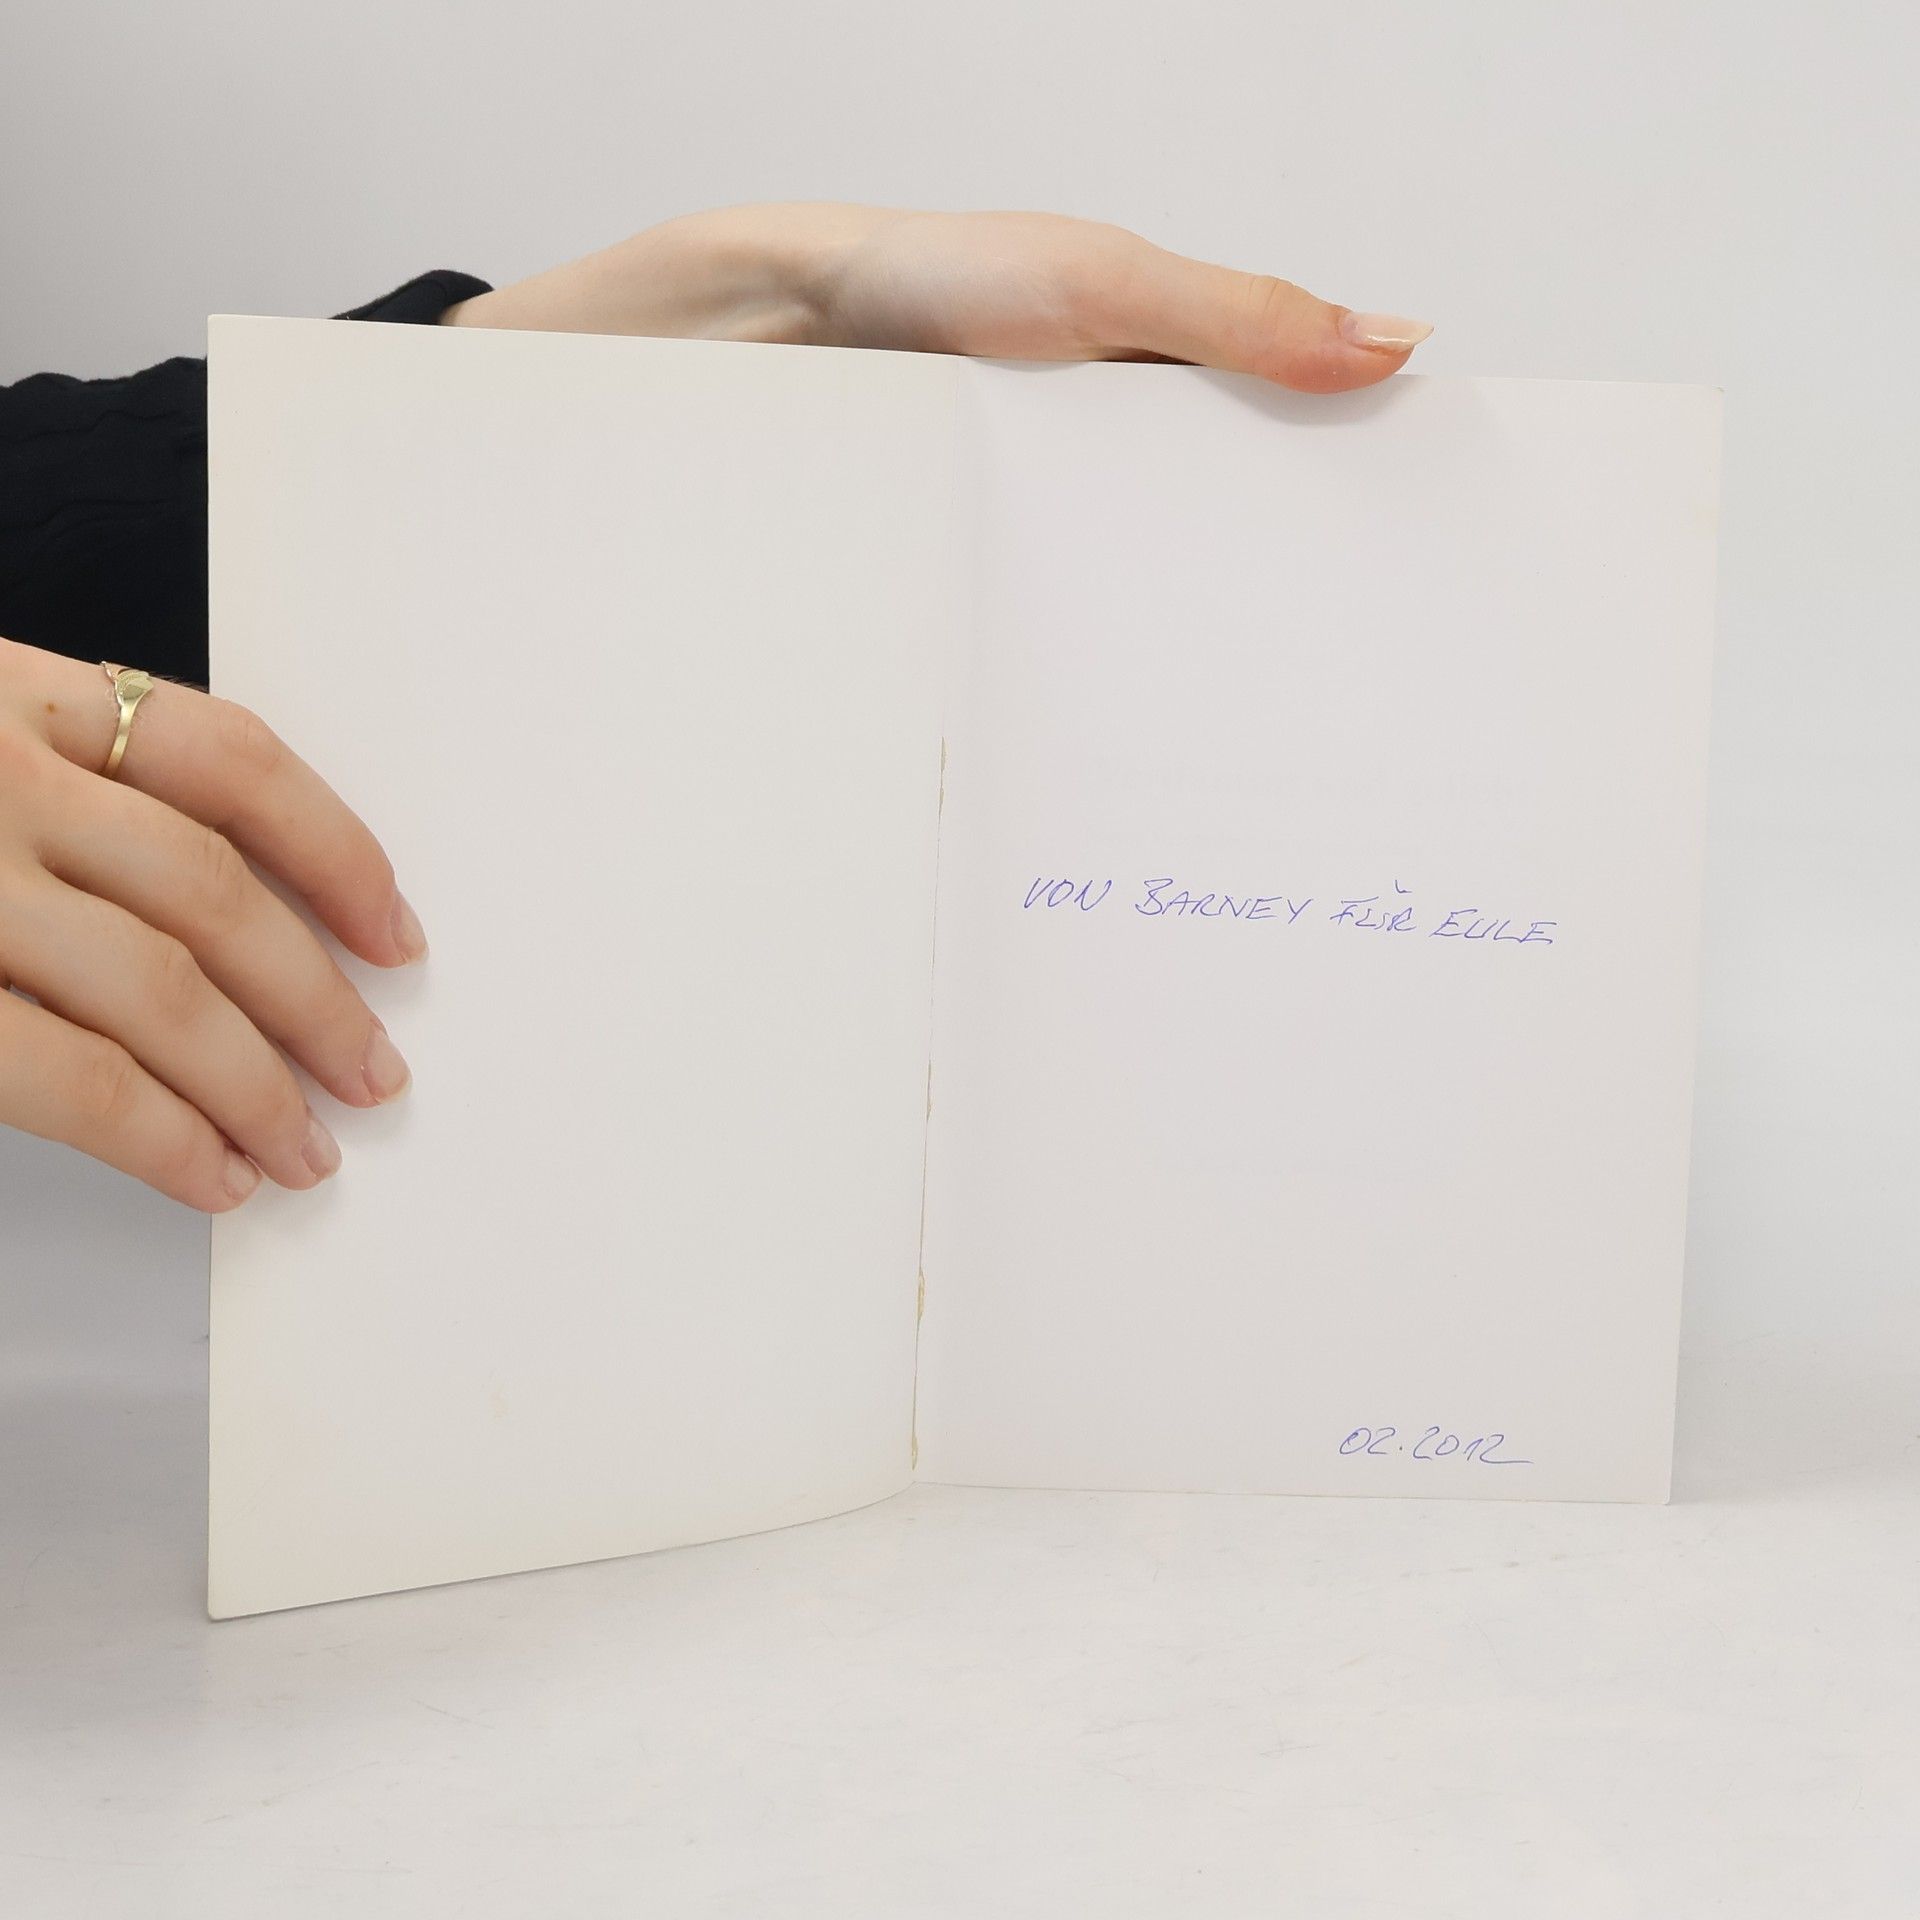 VON BARNEY FÜR EULE
02.2012